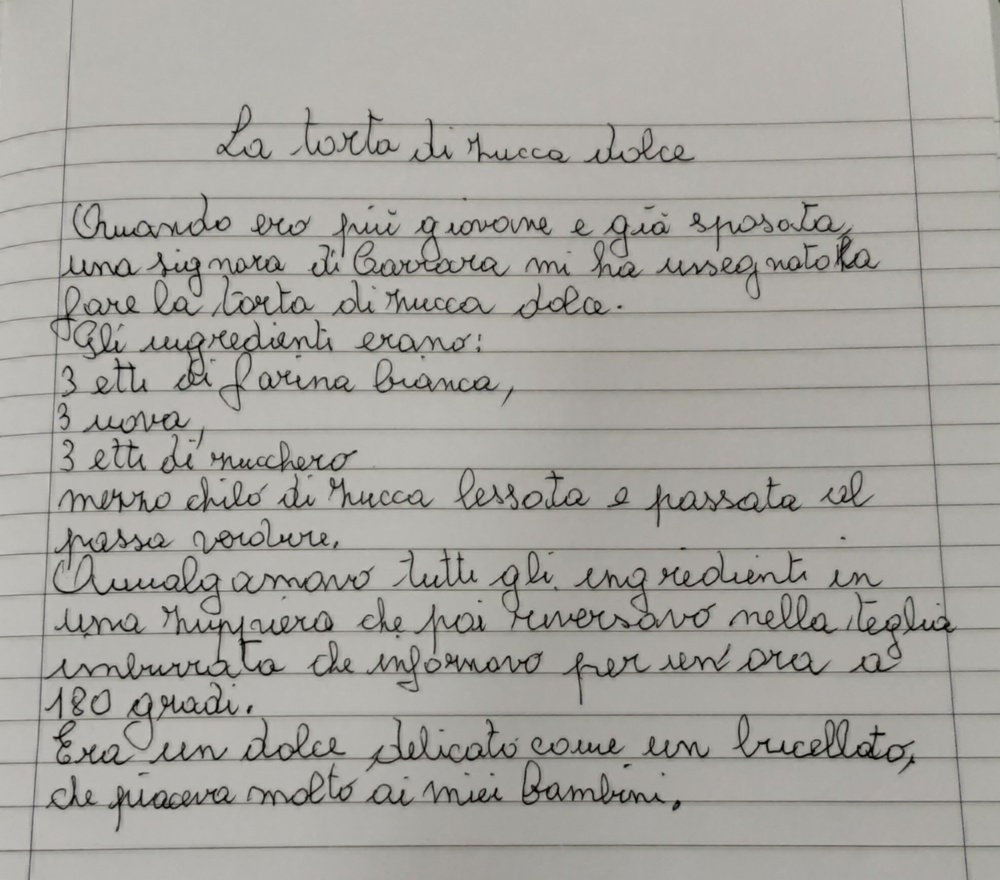 La torta di zucca dolce
Quando ero più giovane e già sposata,
una signora di Carrara mi ha insegnato a
fare la torta di zucca dolce.
Gli ingredienti erano:
3 etti di farina bianca,
3 uova,
3 etti di zucchero
mezzo chilo di zucca lessata e passata al
passa verdure.
Amalgamavo tutti gli ingredienti in
una zuppiera che poi riversavo nella teglia
imburrata che infornavo per un'ora a
180 gradi.
Era un dolce delicato come un bucellato,
che piaceva molto ai miei bambini.